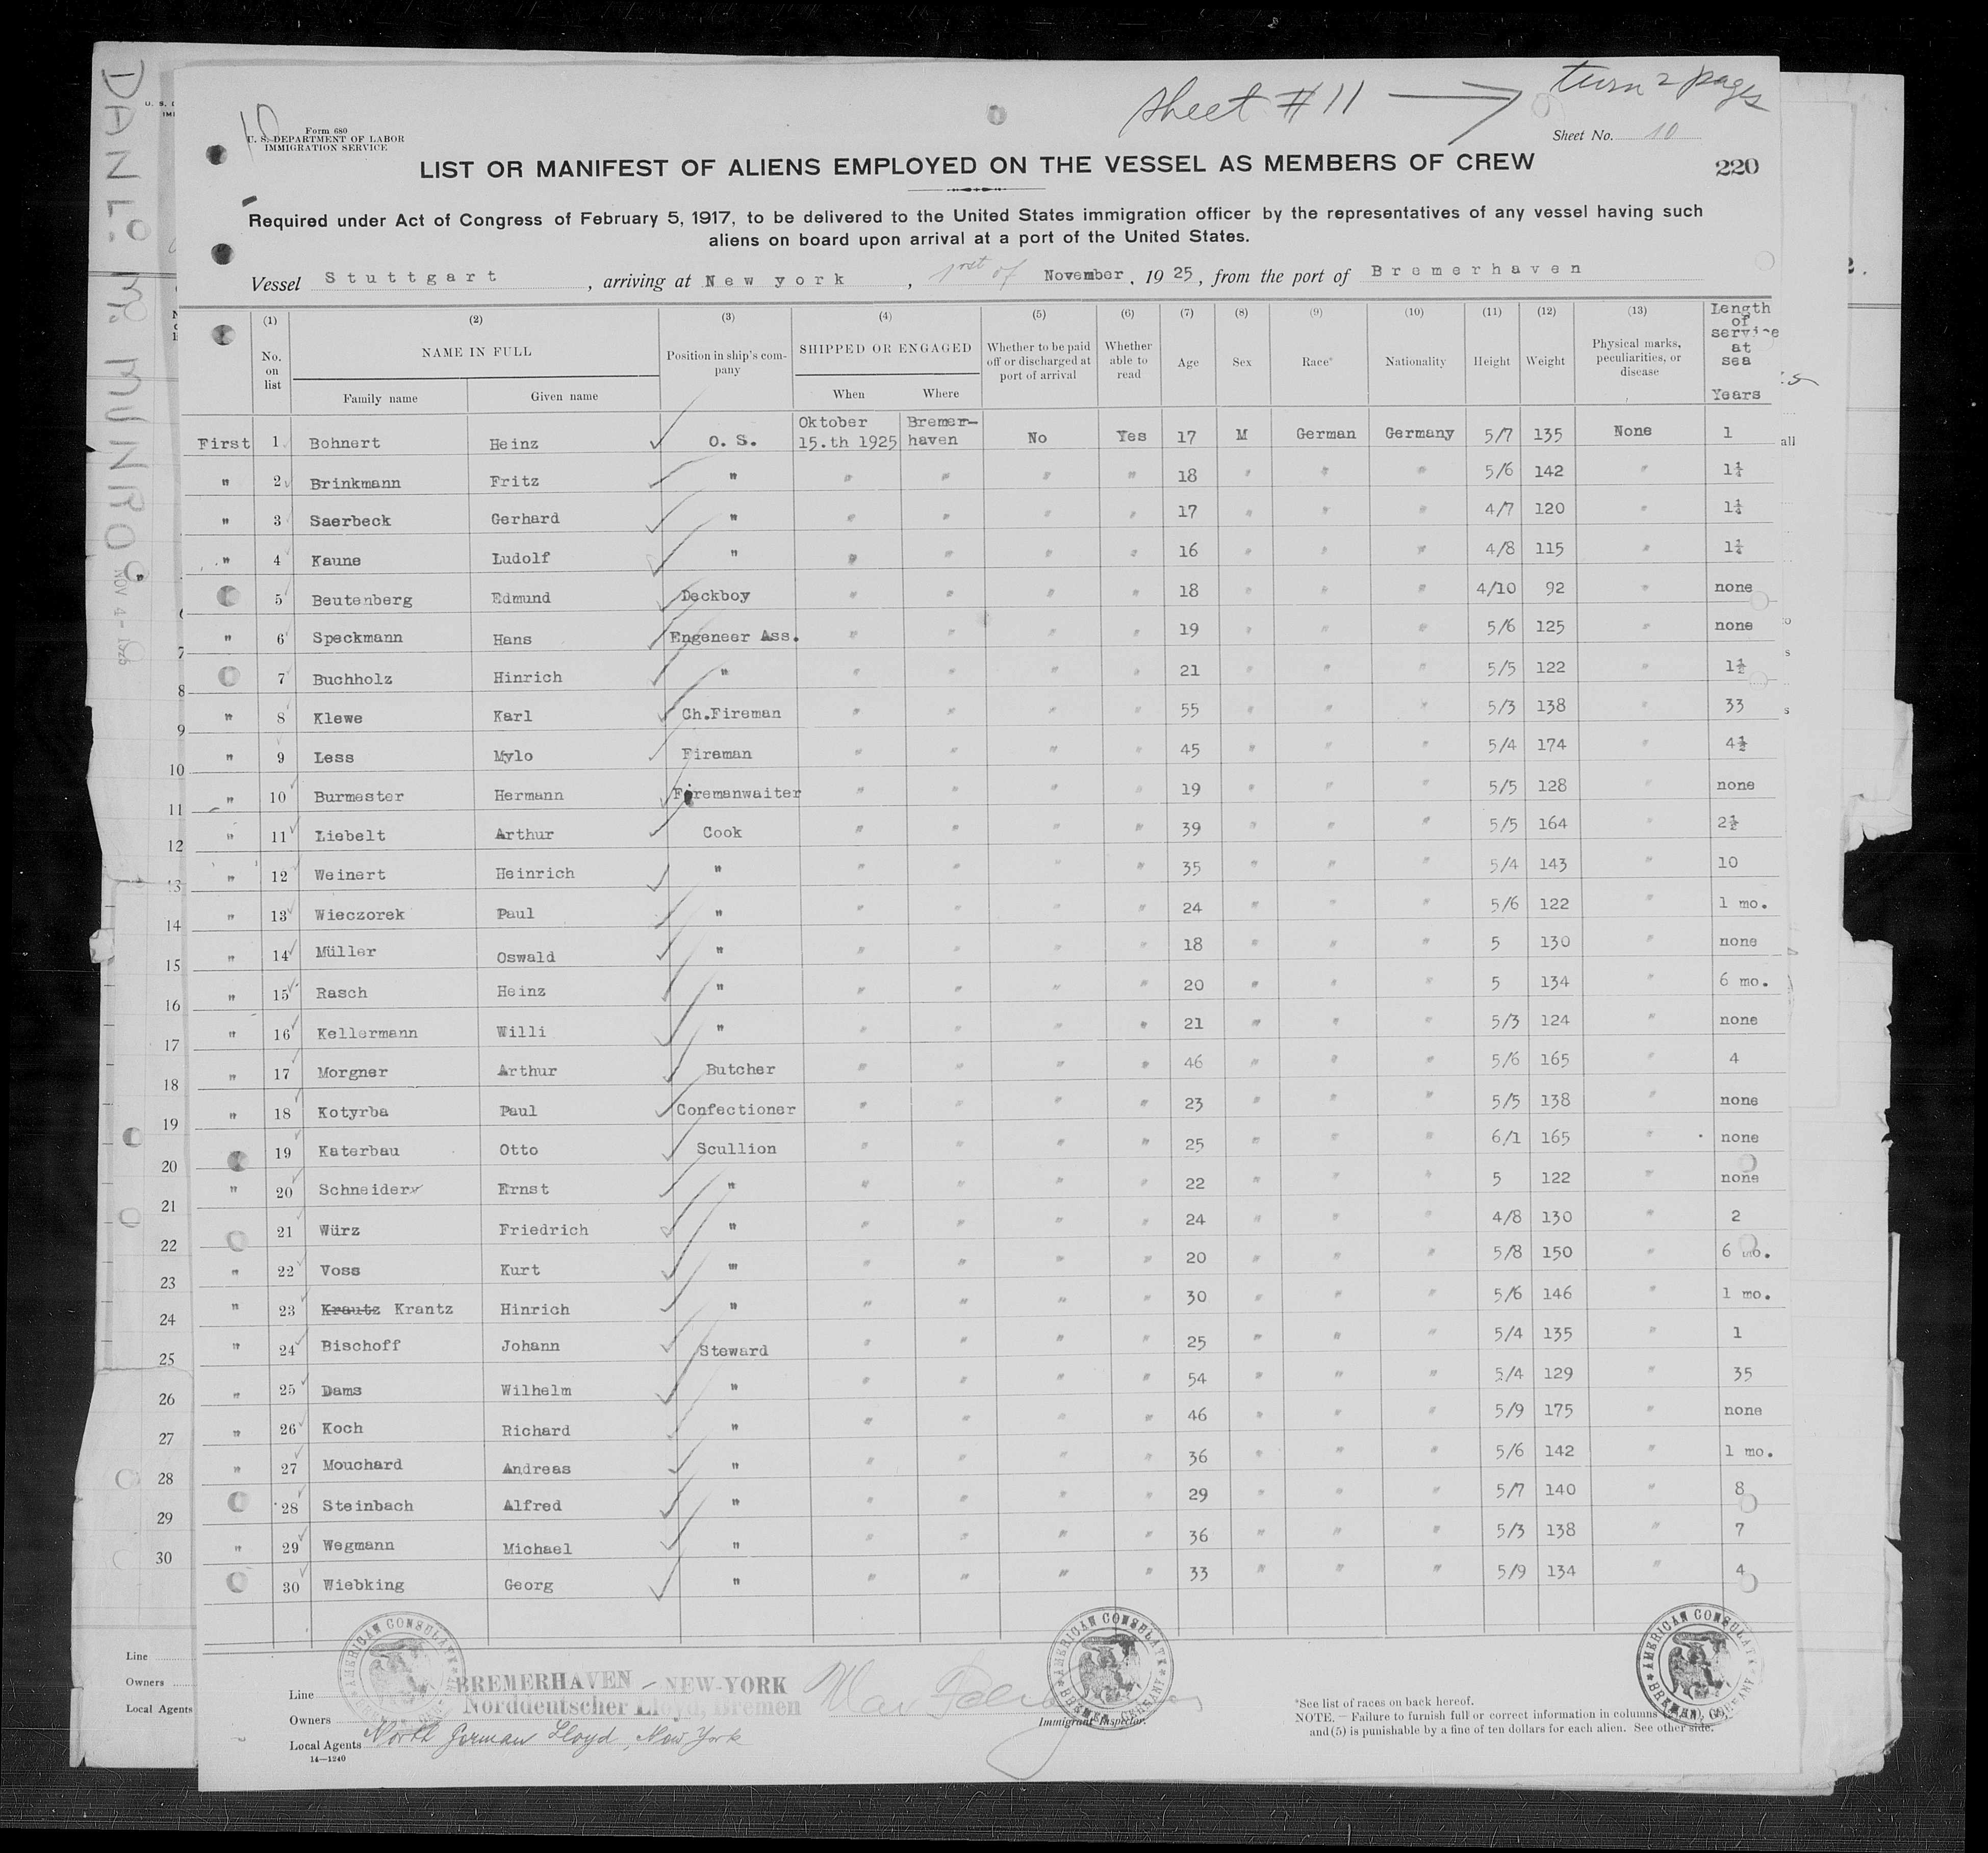 sheet # 11 → turn 2 pages
10
Form 680
U. S. DEPARTMENT OF LABOR
IMMIGRATION SERVICE
Sheet No. 10
LIST OR MANIFEST OF ALIENS EMPLOYED ON THE VESSEL AS MEMBERS OF CREW
220
Required under Act of Congress of February 5, 1917, to be delivered to the United States immigration officer by the representatives of any vessel having such
aliens on board upon arrival at a port of the United States.
Vessel Stuttgart, arriving at New york, port of November, 1925, from the port of Bremerhaven
(1) (2) (3) (4) (5) (6) (7) (8) (9) (10) (11) (12) (13) Length of service at sea Years
No. on list NAME IN FULL Position in ship's company SHIPPED OR ENGAGED Whether to be paid off or discharged at port of arrival Whether able to read Age Sex Race* Nationality Height Weight Physical marks, peculiarities, or disease
Family name Given name When Where
First 1 Bohnert Heinz O. S. Oktober 15.th 1925 Bremer-haven No Yes 17 M German Germany 5/7 135 None 1
" 2 Brinkmann Fritz " " " " " 18 " " " 5/6 142 " 1¼
" 3 Saerbeck Gerhard " " " " " 17 " " " 4/7 120 " 1¼
" 4 Kaune Ludolf " " " " " 16 " " " 4/8 115 " 1¼
5 Beutenberg Edmund Deckboy " " " " 18 " " " 4/10 92 " none
" 6 Speckmann Hans Engeneer Ass. " " " " 19 " " " 5/6 125 " none
7 Buchholz Hinrich " " " " " 21 " " " 5/5 122 " 1½
" 8 Klewe Karl Ch.Fireman " " " " 55 " " " 5/3 138 " 33
" 9 Less Mylo Fireman " " " " 45 " " " 5/4 174 " 4½
" 10 Burmester Hermann Firemanwaiter " " " " 19 " " " 5/5 128 " none
" 11 Liebelt Arthur Cook " " " " 39 " " " 5/5 164 " 2½
" 12 Weinert Heinrich " " " " " 35 " " " 5/4 143 " 10
" 13 Wieczorek Paul " " " " " 24 " " " 5/6 122 " 1 mo.
" 14 Müller Oswald " " " " " 18 " " " 5 130 " none
" 15 Rasch Heinz " " " " " 20 " " " 5 134 " 6 mo.
" 16 Kellermann Willi " " " " " 21 " " " 5/3 124 " none
" 17 Morgner Arthur Butcher " " " " 46 " " " 5/6 165 " 4
" 18 Kotyrba Paul Confectioner " " " " 23 " " " 5/5 138 " none
19 Katerbau Otto Scullion " " " " 25 " " " 6/1 165 " none
" 20 Schneider Ernst " " " " " 22 " " " 5 122 " none
21 Würz Friedrich " " " " " 24 " " " 4/8 130 " 2
" 22 Voss Kurt " " " " " 20 " " " 5/8 150 " 6 mo.
" 23 Krautz Krantz Hinrich " " " " " 30 " " " 5/6 146 " 1 mo.
" 24 Bischoff Johann Steward " " " " 25 " " " 5/4 135 " 1
" 25 Dams Wilhelm " " " " " 54 " " " 5/4 129 " 35
" 26 Koch Richard " " " " " 46 " " " 5/9 175 " none
" 27 Mouchard Andreas " " " " " 36 " " " 5/6 142 " 1 mo.
28 Steinbach Alfred " " " " " 29 " " " 5/7 140 " 8
" 29 Wegmann Michael " " " " " 36 " " " 5/3 138 " 7
30 Wiebking Georg " " " " " 33 " " " 5/9 134 " 4
Line BREMERHAVEN - NEW-YORK
Owners Norddeutscher Lloyd, Bremen
Local Agents North German Lloyd, New York
14—1240
Immigrant Inspector.
AMERICAN CONSULATE BREMEN, GERMANY
AMERICAN CONSULATE BREMEN, GERMANY
AMERICAN CONSULATE BREMEN, GERMANY
*See list of races on back hereof.
NOTE.—Failure to furnish full or correct information in columns
and (5) is punishable by a fine of ten dollars for each alien. See other side.
DAN L. McMUNRO
NOV 4 - 1925
6
7
8
9
10
11
12
13
14
15
16
17
18
19
20
21
22
23
24
25
26
27
28
29
30
Line
Owners
Local Agents
all